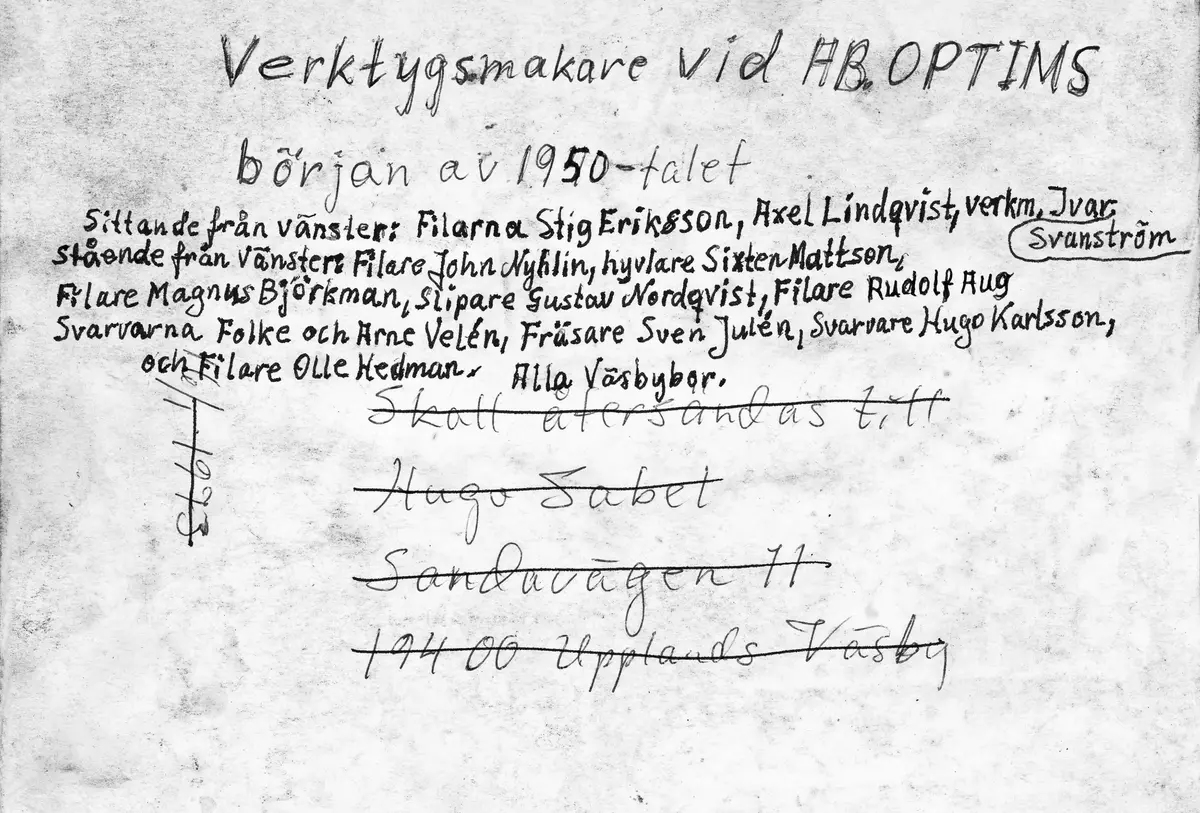 Verktygsmakare vid AB. OPTIMS
början av 1950-talet
Sittande från vänster: Filarna Stig Eriksson, Axel Lindqvist, verkm. Ivar
Svanström
stående från vänster: Filare John Nyhlin, hyvlare Sixten Mattson,
Filare Magnus Björkman, Slipare Gustav Nordqvist, Filare Rudolf Aug
Svarvarna Folke och Arne Velén, Fräsare Sven Julén, Svarvare Hugo Karlsson,
och Filare Olle Hedman. Alla Väsbybor.
Skall återsändas till
Hugo Sabel
Sandavägen 11
194 00 Upplands Väsby